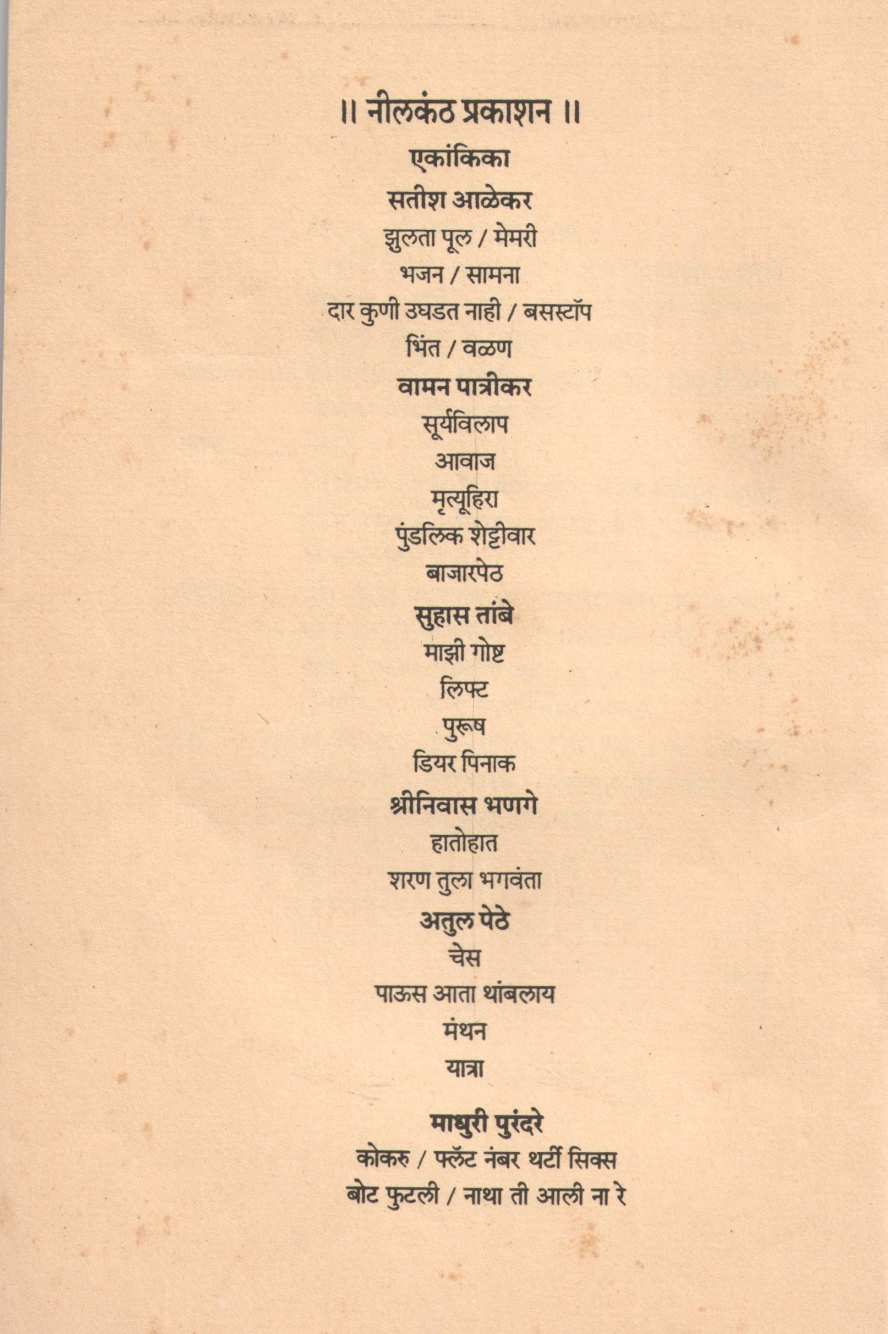 ॥ नीलकंठ प्रकाशन ॥
एकांकिका
सतीश आळेकर
झुलता पूल / मेमरी
भजन / सामना
दार कुणी उघडत नाही / बसस्टॉप
भिंत / वळण
वामन पात्रीकर
सूर्यविलाप
आवाज
मृत्यूहिरा
पुंडलिक शेट्टीवार
बाजारपेठ
सुहास तांबे
माझी गोष्ट
लिफ्ट
पुरूष
डियर पिनाक
श्रीनिवास भणगे
हातोहात
शरण तुला भगवंता
अतुल पेठे
चेस
पाऊस आता थांबलाय
मंथन
यात्रा
माधुरी पुरंदरे
कोकरु / फ्लॅट नंबर थर्टी सिक्स
बोट फुटली / नाथा ती आली ना रे